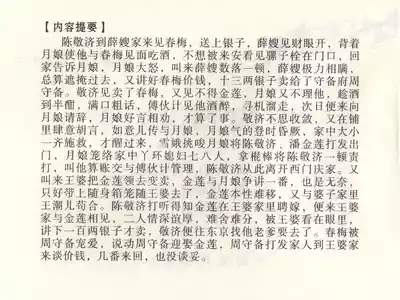 【内容提要】
陈敬济到薛嫂家来见春梅，送上银子，薛嫂见财眼开，背着
月娘使他与春梅见面吃酒，不想被来安看见骡子栓在门口，回
家告诉月娘，月娘大怒，叫来薛嫂数落一顿，薛嫂极力相瞒，
总算遮掩过去，又讲好春梅价钱，十三两银子卖给了守备府周
守备。敬济见卖了春梅，又见不得金莲，月娘又不理他，趁酒
到半酣，满口粗话，傅伙计见他酒醉，寻机溜走，次日便来向
月娘请辞，月娘好言相劝，才算了事。敬济不思收敛，又在铺
里肆意胡言，如意儿传与月娘，月娘气的登时昏厥，家中大小
一齐施救，才醒过来，雪娥挑唆月娘将陈敬济、潘金莲打发出
门，月娘笼络家中丫环媳妇七八人，拿棍棒将陈敬济一顿责
打，叫他算账交与傅伙计管理，陈敬济从此离开西门庆家。又
叫来王婆把金莲领去变卖，金莲与月娘争讲一番，也是无奈，
只好带上随身箱笼随王婆去了，金莲本性难移，又与婆子家里
王潮儿苟合。陈敬济打听得知金莲在王婆家里聘嫁，便来王婆
家与金莲相见，二人情深谊厚，难舍难分，被王婆看在眼里，
讲下一百两银子才卖，敬济便往东京找他老爹要去了。春梅被
周守备宠爱，说动周守备迎娶金莲，周守备打发家人到王婆家
来谈价钱，几番来回，也没谈妥。